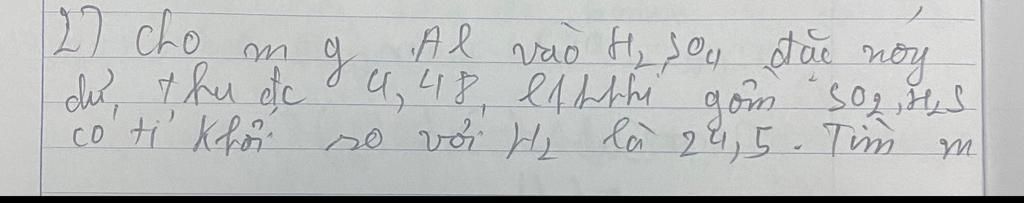 27 cho m g Al vào H₂SO₄ đặc nóng
dư, thu đc 4,48 l hh khí gồm SO₂, H₂S
có tỉ khối so với H₂ là 24,5. Tìm m